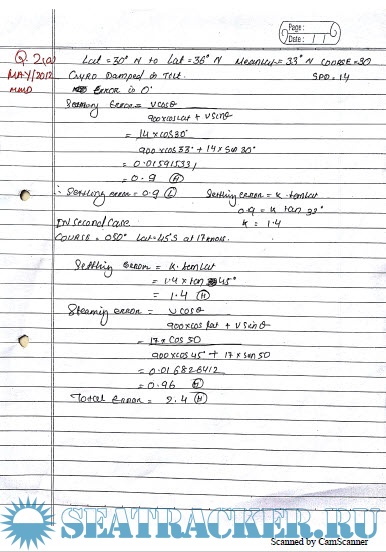 Page:
Date: / /
Q. 2(a)
MAY/2012
MMD
Lat = 30° N to Lat = 36° N Mean Lat = 33° N COURSE = 30
GYRO Damped in Tilt. SPD = 14
ERROR is 0°
Steaming Error = V cosθ
900 x cos Lat + V sinθ
= 14 x cos 30°
900 cos 33° + 14 x Sin 30°
= 0.01591533
= 0.9 (H)
∴ Settling error = 0.9 (L) Settling error = K. tan Lat
0.9 = K tan 33°
K = 1.4
IN Second CASE
COURSE = 050° Lat = 45°S at 17 knots.
Settling Error = K. tan Lat
= 1.4 x tan 45°
= 1.4 (H)
Steaming error = V cosθ
900 x cos Lat + V sinθ
= 17 x Cos 50
900 x cos 45° + 17 x sin 50
= 0.016826412
= 0.96 (H)
Total Error = 2.4 (H)
SEATRACKER.RU
Scanned by CamScanner